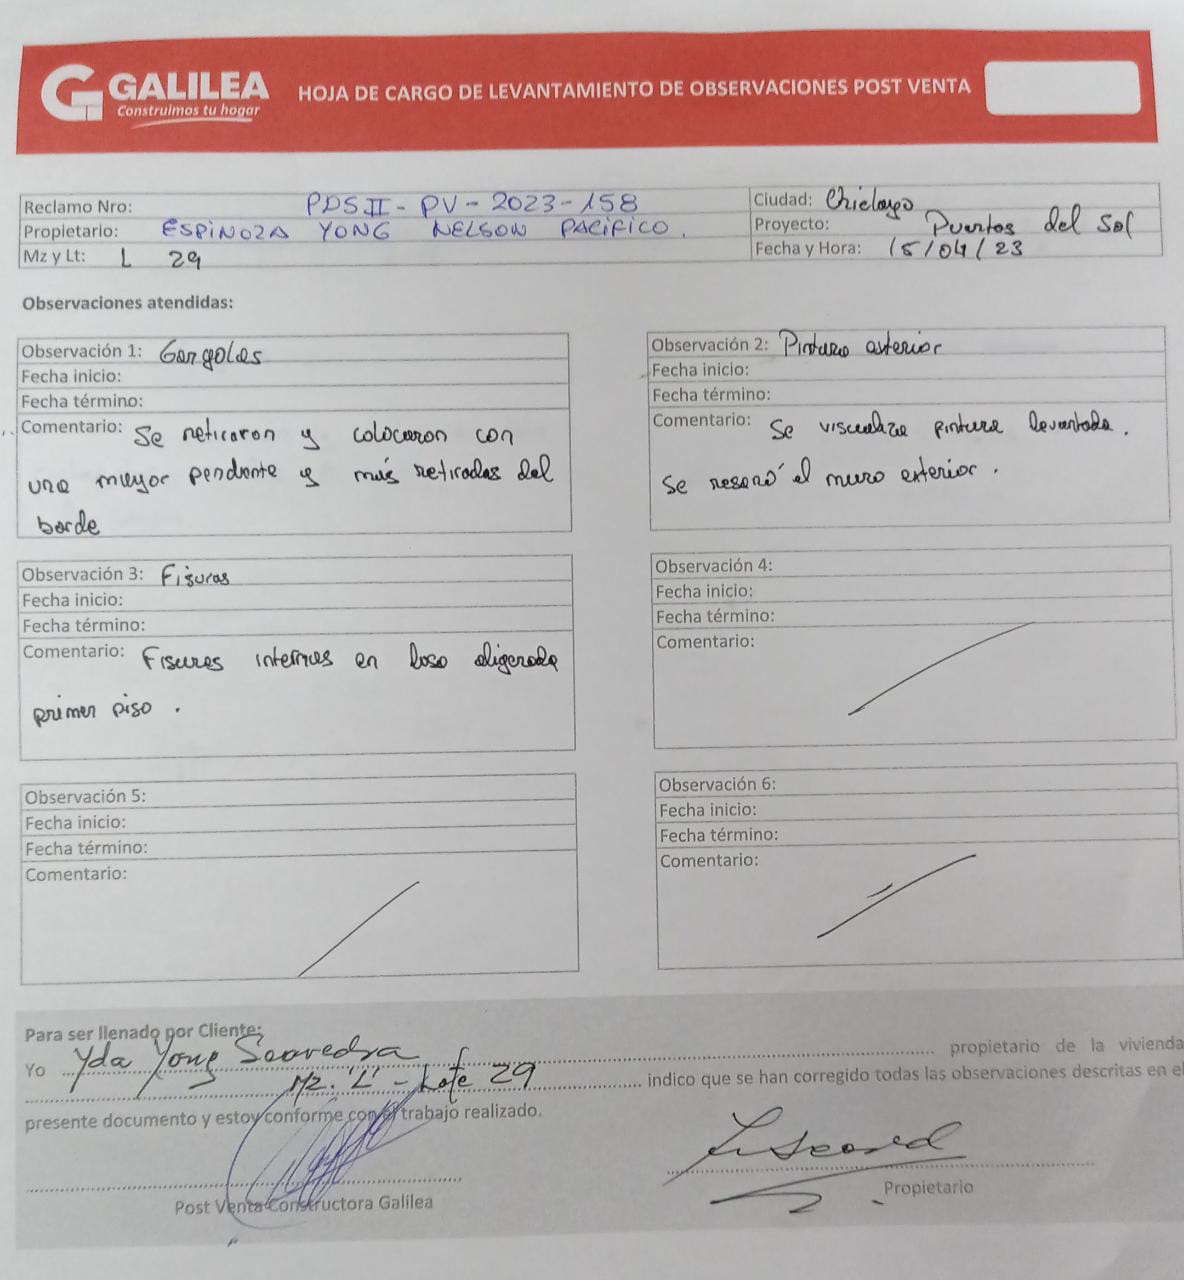 GALILEA
Construimos tu hogar
HOJA DE CARGO DE LEVANTAMIENTO DE OBSERVACIONES POST VENTA
Reclamo Nro: PDS.II - PV - 2023 - 158
Propietario: ESPINOZA YONG NELSON PACIFICO.
Mz y Lt: L 29
Ciudad: Chiclayo
Proyecto: Puertas del Sol
Fecha y Hora: 15/04/23
Observaciones atendidas:
Observación 1: Gargolas
Fecha inicio:
Fecha término:
Comentario: Se reticaron y colocaron con
una mayor pendiente y más retiradas del
borde
Observación 2: Pintura exterior
Fecha inicio:
Fecha término:
Comentario: Se visualiza pintura levantada.
Se resanó el muro exterior.
Observación 3: Fisuras
Fecha inicio:
Fecha término:
Comentario: Fisuras internas en losa aligerada
primer piso.
Observación 4:
Fecha inicio:
Fecha término:
Comentario:
Observación 5:
Fecha inicio:
Fecha término:
Comentario:
Observación 6:
Fecha inicio:
Fecha término:
Comentario:
Para ser llenado por Cliente:
Yo Yda Yong Saavedra propietario de la vivienda
Mz. "L" - Lote 29 indico que se han corregido todas las observaciones descritas en el
presente documento y estoy conforme con el trabajo realizado.
Post Venta Constructora Galilea
Propietario